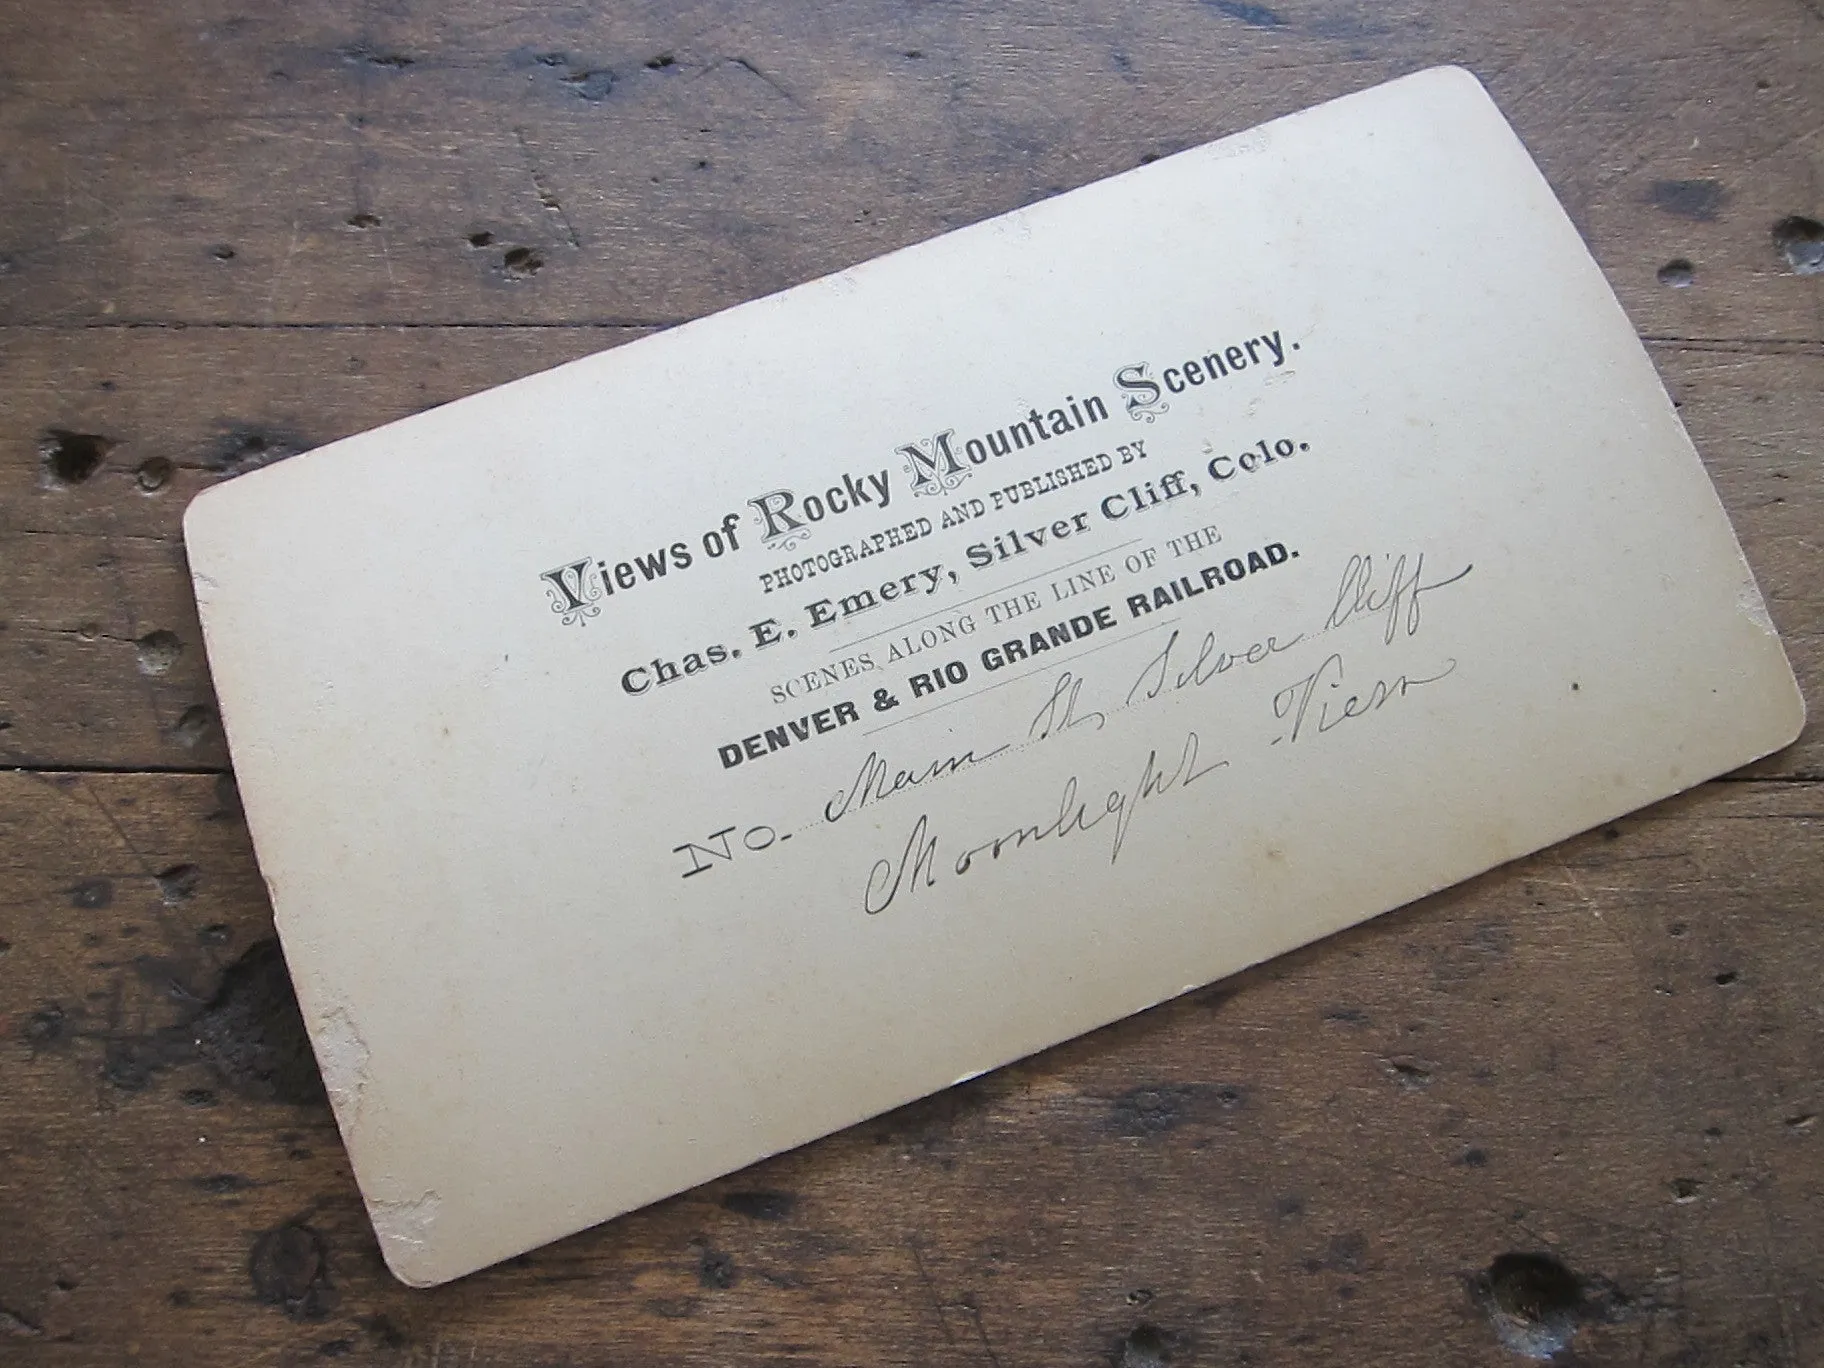 Views of Rocky Mountain Scenery.
PHOTOGRAPHED AND PUBLISHED BY
Chas. E. Emery, Silver Cliff, Colo.
SCENES ALONG THE LINE OF THE
DENVER & RIO GRANDE RAILROAD.
No. Main St, Silver Cliff
Moonlight View